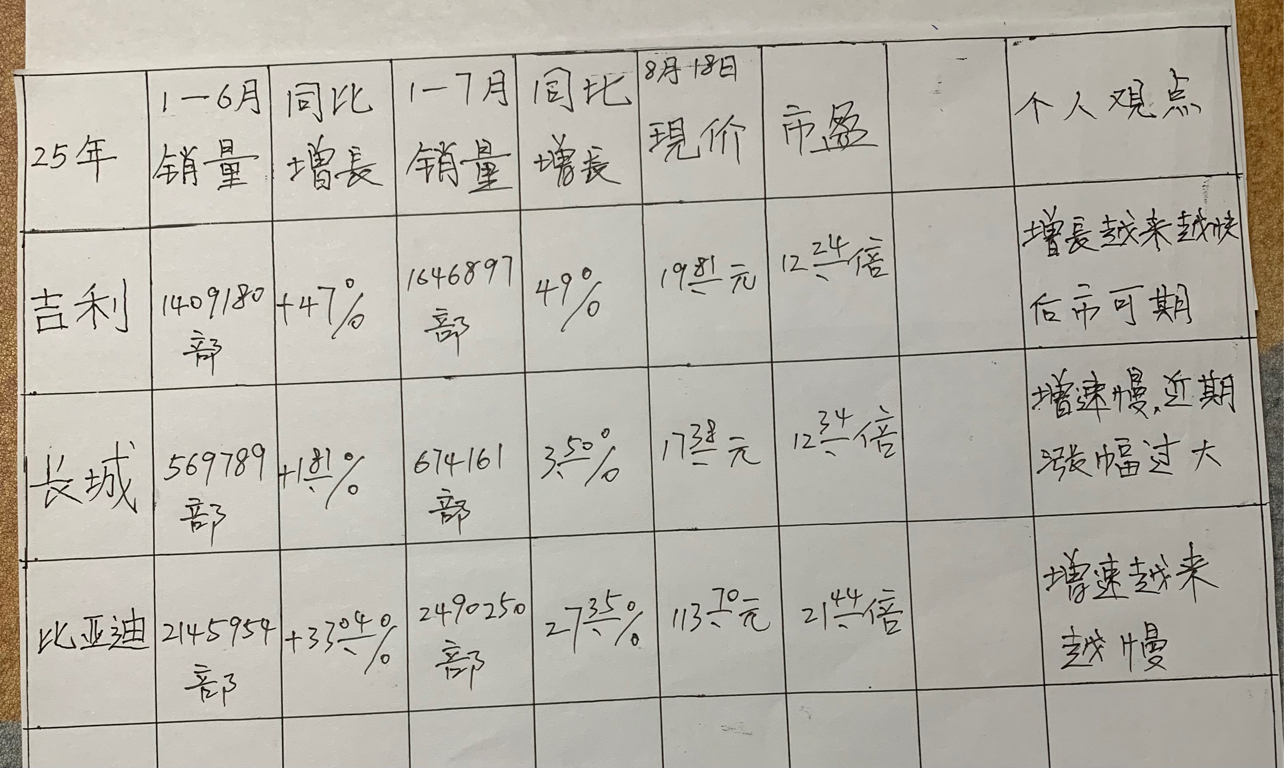 25年
1－6月
销量
同比
增長
1－7月
销量
同比
增長
8月18日
現价
市盈
个人观点
吉利
1409180
部
+47%
1646897
部
49%
19.81元
12.24倍
增長越来越快
后市可期
长城
569789
部
+1.81%
674161
部
3.50%
17.38元
12.34倍
增速慢,近期
涨幅过大
比亚迪
2145954
部
+33.04%
2490250
部
27.35%
113.70元
21.44倍
增速越来
越慢